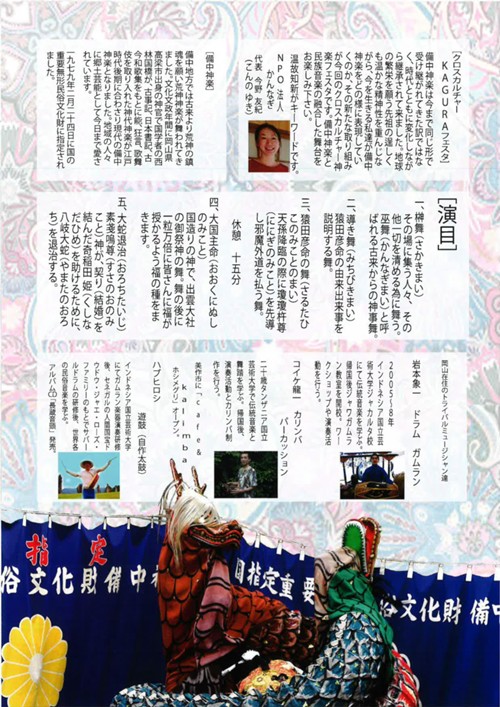 [クロスカルチャー
KAGURAフェスタ]
備中神楽は今まで同じ形で
受け継がれてきた訳ではな
く、時代とともに変化しなが
ら継承されて来ました。地球
の繁栄を願う先祖の逞しく
も温かな精神性を重んじな
がら、今を生きる私達が備中
神楽をどの様に表現してい
くのか、その新たな取り組み
が今回のクロスカルチャー神
楽フェスタです。備中神楽と
民族音楽の融合した舞台を
お楽しみ下さい。
温故知新がキーワードです。
NPO法人
かんなぎ
代表 今野 友紀
(こんの ゆき)
[備中神楽]
備中地方では古来より荒神の鎮
魂を願い荒神神楽が舞われてき
ました。文化文政年間に岡山県
高梁市出身の神官で国学者の西
林国橋が、古事記、日本書紀、古
今和歌集をもとに能、狂言、歌舞
伎を取り入れた神代神楽が江戸
時代後期に合わさり現代の備中
神楽となりました。地域の人々
に郷土芸能として今日まで愛さ
れています。
一九七九年二月二十四日に国の
重要無形民俗文化財に指定され
ました。
[演目]
一、榊舞(さかきまい)
その場に集う人々、その
他一切を清める為に舞う。
巫舞(かんなぎまい)と呼
ばれる古来からの神事舞。
二、導き舞(みちびきまい)
猿田彦命の由来・出来事を
説明する舞。
三、猿田彦命の舞(さるたひ
このみことのまい)
天孫降臨の際に瓊瓊杵尊
(ににぎのみこと)を先導
し邪魔外道を払う舞。
休憩 十五分
四、大国主命(おおくにぬし
のみこと)
国造りの神で、出雲大社
の御祭神の舞。舞の後に
一粒万倍に皆さんに福が
授かるよう福の種をま
きます。
五、大蛇退治(おろちたいじ)
素戔嗚尊(すさのおのみ
こと)神が、契り(結婚)を
結んだ奇稲田姫(くしな
だひめ)を助けるために、
八岐大蛇(やまたのおろ
ち)を退治する。
岡山在住のトライバルミュージシャン達
岩本象一 ドラム ガムラン
インドネシア国立芸
術大学ジャカルタ校
にて伝統音楽を学ぶ。
帰国後ジャワガムラ
ン教室を開校。ワー
クショップや演奏活
動を行う。
コイケ龍一 カリンバ
パーカッション
芸術大学で伝統音楽と
舞踏を学ぶ。帰国後、
演奏活動とカリンバ制
作を行う。
美作市に「cafe&
ホシメグリ」オープン。
kalimba
ハブヒロシ
遊鼓(自作太鼓)
インドネシア国立芸術大学
にてガムラン楽器演奏研修
後、セネガルの人間国宝ド
ゥドゥ・ンジャエ・ローズ・
ファミリーのもとでサバー
ルドラムの研修後、世界各
の民俗音楽を学ぶ。
指定
俗文化財備中神
国指定重要
俗文化財 備中